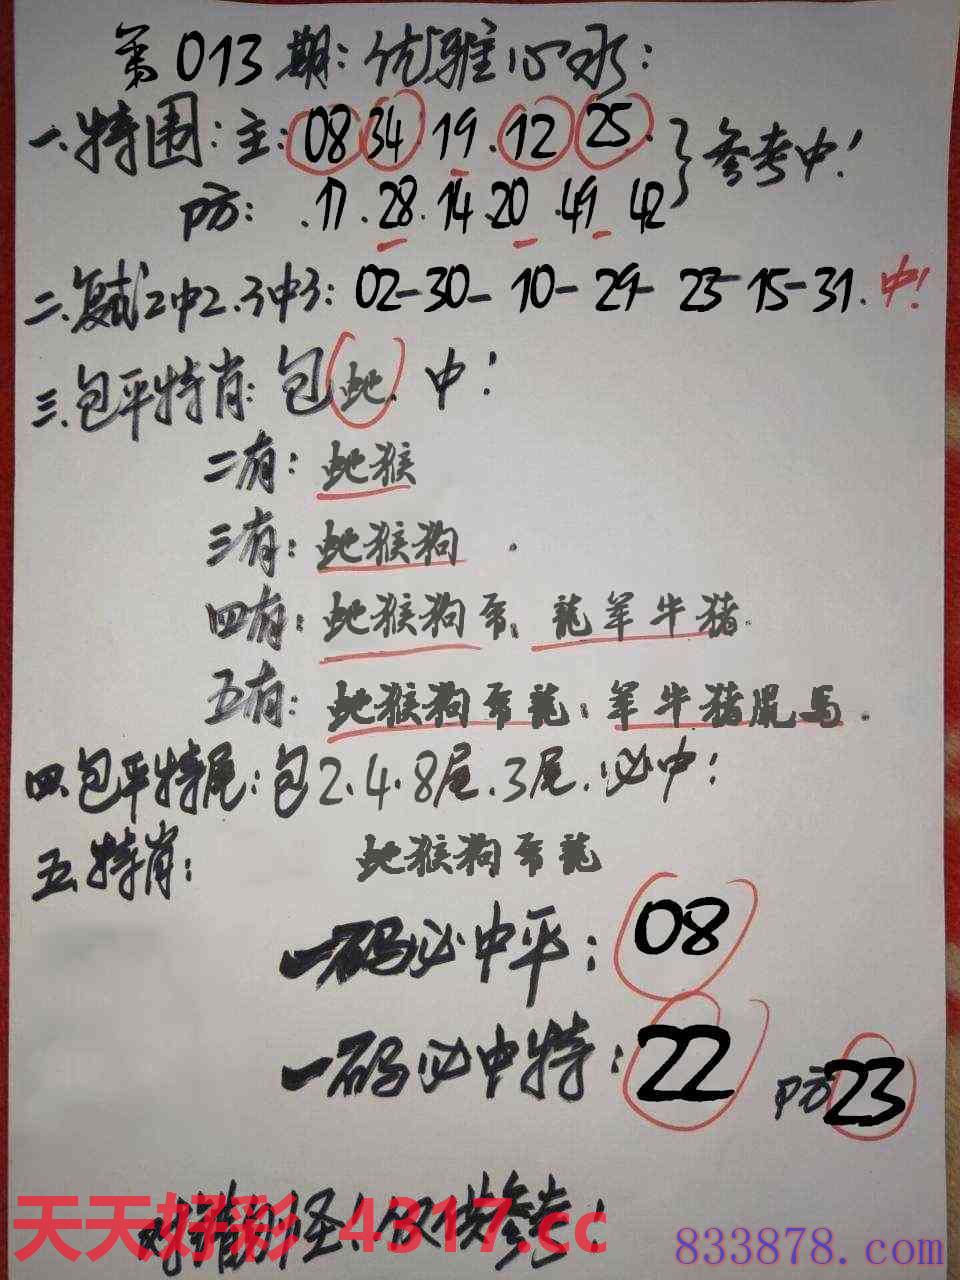 第013期:优雅心水:
一.特围:主:08 34.19.12.25.
防:.17.28.14.20.49 42
参考中!
二.复试2中2.3中3:02-30-10-29-23-15-31.中!
三.包平特肖:包蛇.中!
二有:蛇猴
三有:蛇猴狗.
四有:蛇猴狗 龍羊牛猪.
五有:蛇猴狗 龍:羊牛猪鼠馬.
四.包平特尾:包2.4.8尾.3尾.必中!
五.特肖:蛇猴狗 龍
一码必中平:08
一码必中特:22 防23
对错勿怪!仅供参考!
天天好彩 4317.cc
833878.com